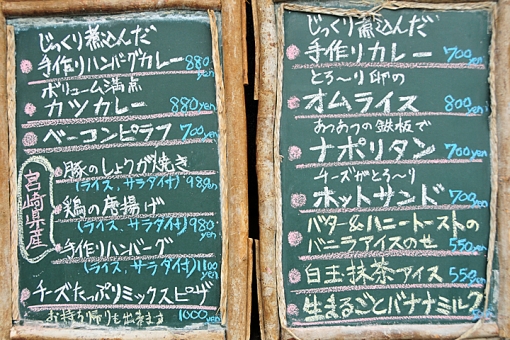 じっくり煮込んだ
手作りハンバグカレー 880yen
ボリューム満点
カツカレー 880yen
ベーコンピラフ 700yen
宮崎県産
豚のしょうが焼き
(ライス、サラダ付) 980yen
鶏の唐揚げ
(ライス、サラダ付) 980yen
手作りハンバーグ
(ライス、サラダ付) 1100yen
チーズたっぷりミックスピザ
お持ち帰りも出来ます 1000yen
じっくり煮込んだ
手作りカレー 700yen
とろ〜り卵の
オムライス 800yen
あつあつの鉄板で
ナポリタン 700yen
チーズがとろ〜り
ホットサンド 700yen
バター&ハニートーストの
バニラアイスのせ 550yen
白玉抹茶アイス 550yen
生まるごとバナナミルク